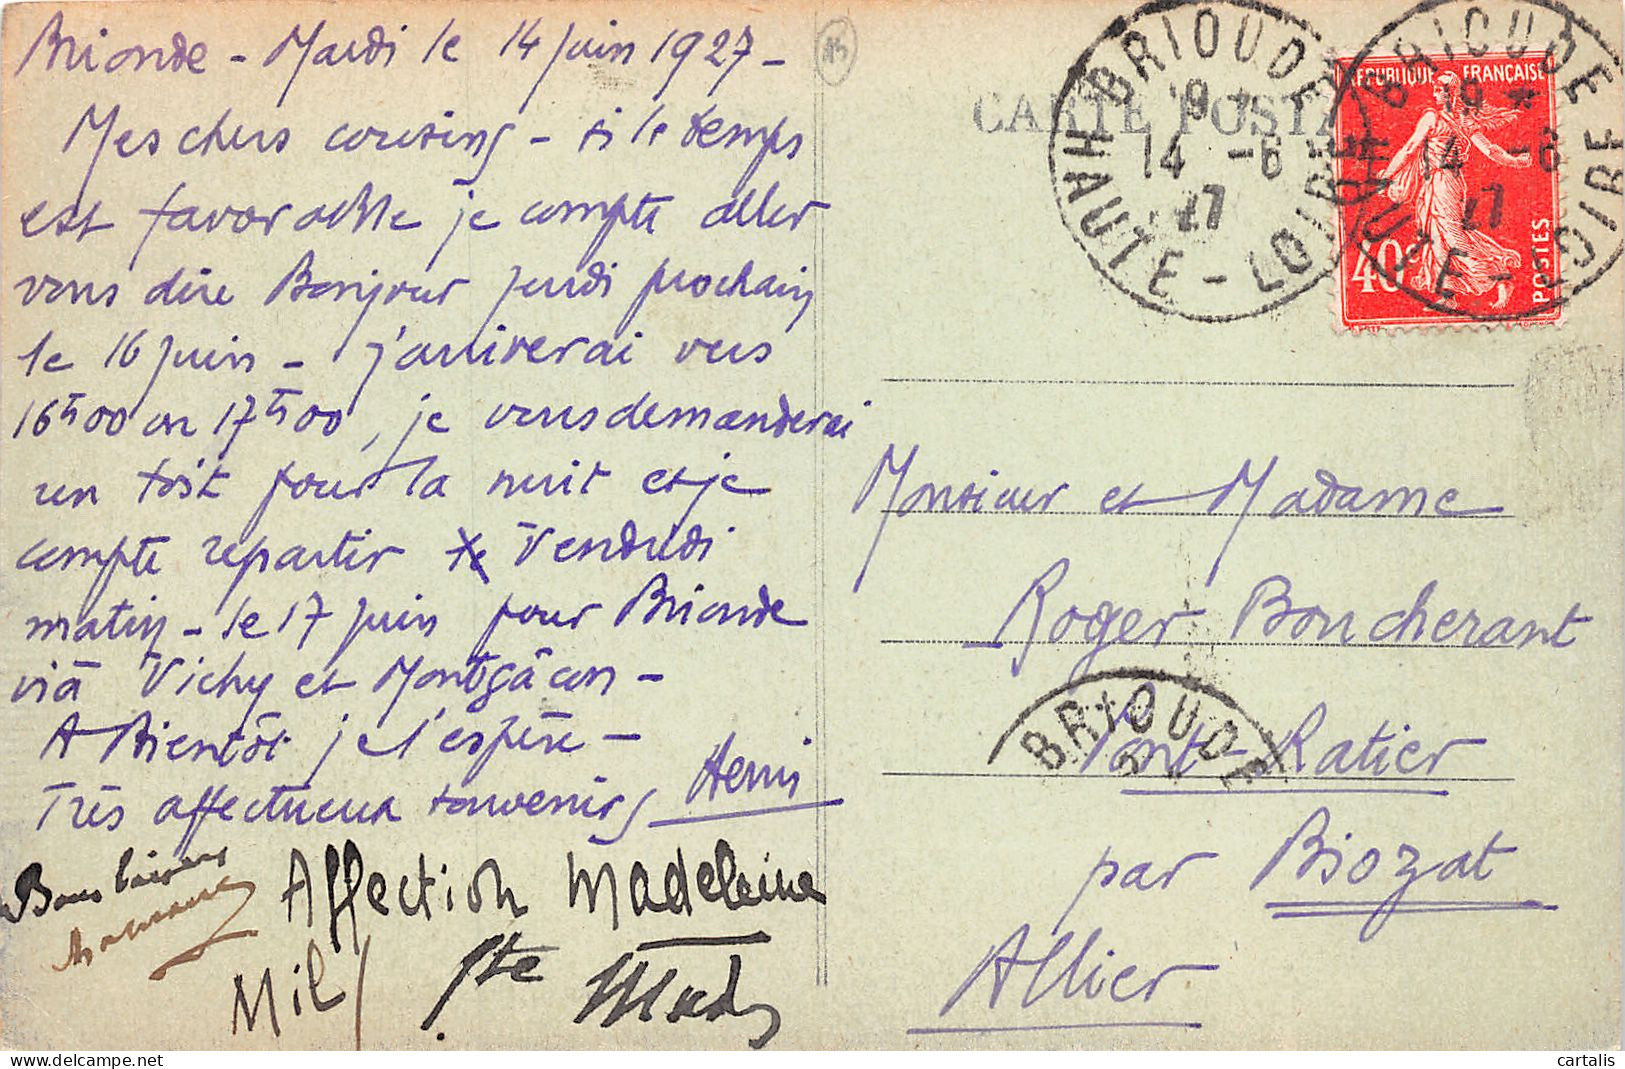 Brioude - Mardi le 14 juin 1927 -
Mes chers cousins - si le temps
est favorable je compte aller
vous dire Bonjour jeudi prochain
le 16 juin - j'arriverai vers
16h00 ou 17h00, je vous demanderai
un toit pour la nuit et je
compte repartir le Vendredi
matin - le 17 juin pour Brioude
viâ Vichy et Montgâcon -
A Bientôt je l'espère -
Très affectueux souvenirs Henri
Bons baisers
Affection Madeleine
Mil
15
CARTE POSTALE
BRIOUDE
HAUTE-LOIRE
19
14 -6
27
BRIOUDE
HAUTE-LOIRE
19 *
14 -6
27
REPUBLIQUE FRANÇAISE
40c
POSTES
Monsieur et Madame
Roger Boucherant
BRIOUDE
Pont-Ratier
par Biozat
Allier
delcampe.net
cartalis